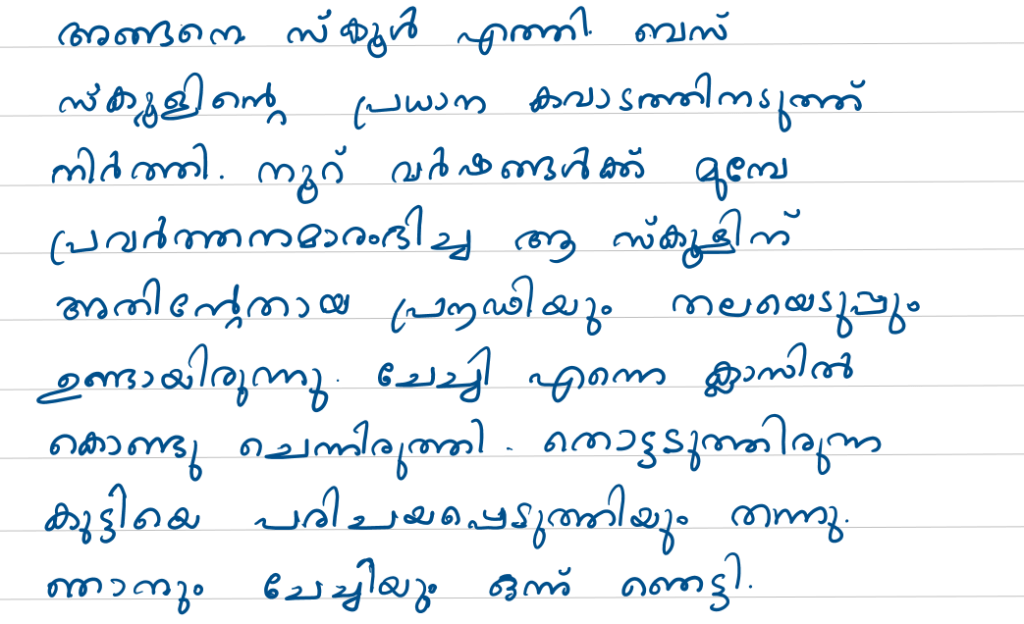 അങ്ങനെ സ്കൂൾ എത്തി. ബസ്
സ്കൂളിന്റെ പ്രധാന കവാടത്തിനടുത്ത്
നിർത്തി. നൂറ് വർഷങ്ങൾക്ക് മുമ്പേ
പ്രവർത്തനമാരംഭിച്ച ആ സ്കൂളിന്
അതിന്റേതായ പ്രൗഢിയും തലയെടുപ്പും
ഉണ്ടായിരുന്നു. ചേച്ചി എന്നെ ക്ലാസിൽ
കൊണ്ടു ചെന്നിരുത്തി. തൊട്ടടുത്തിരുന്ന
കുട്ടിയെ പരിചയപ്പെടുത്തിയും തന്നു.
ഞാനും ചേച്ചിയും ഒന്ന് ഞെട്ടി.